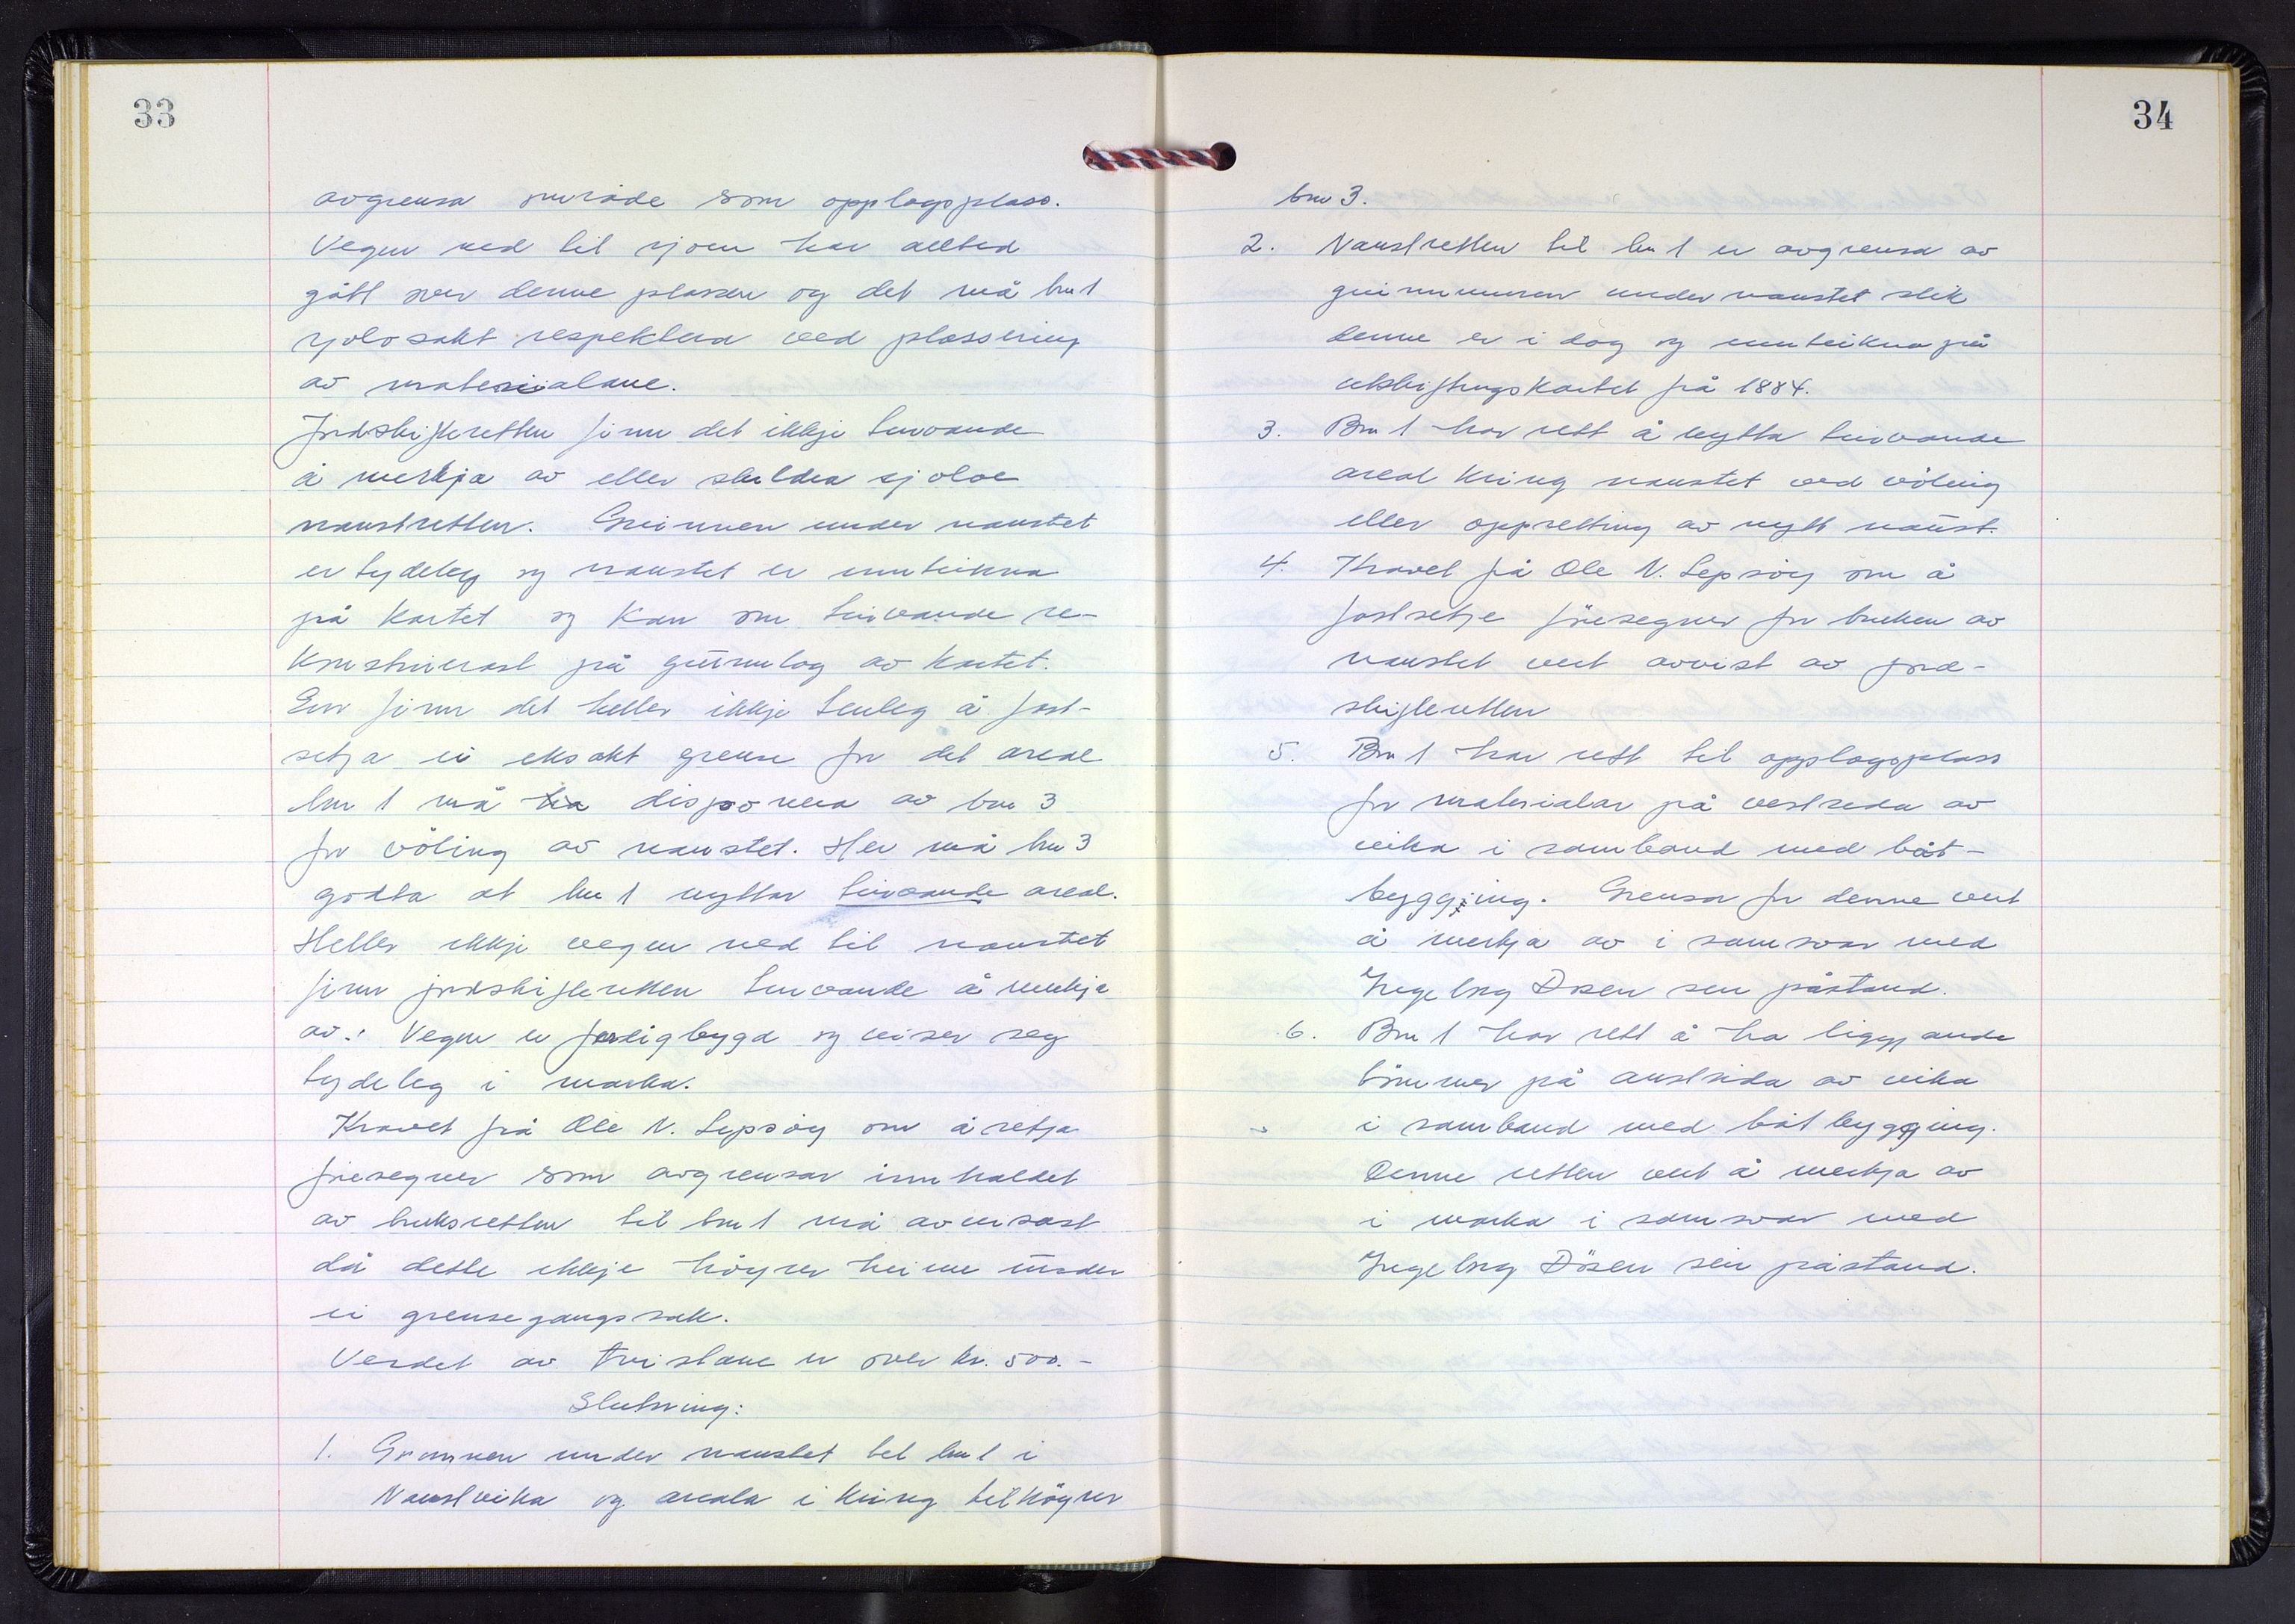 33
avgrensa område som opplagsplass.
Vegen ned til sjøen har alltid
gått over denne plassen og det må bnr 1
sjølvsakt respektera ved plassering
av materialane.
Jordskifteretten finn det ikkje turvande
å merkja av eller skildra sjølve
naustretten. Grunnen under naustet
er tydeleg og naustet er innteikna
på kartet og kan om turvande re-
konstruerast på grunnlag av kartet.
Ein finn det heller ikkje tenleg å fast-
setja ei eksakt grense for det areal
bnr 1 må disponera av bnr 3
for völing av naustet. Her må bnr 3
godta at bnr 1 nyttar turvande areal.
Heller ikkje vegen ned til naustet
finn jordskifteretten turvande å merkja
av. Vegen er ferdigbygd og viser seg
tydeleg i marka.
Kravet frå Ole N. Lepsøy om å setja
føresegner som avgrensar innhaldet
av bruksretten til bnr 1 må avvisast
då dette ikkje höyrer heime under
ei grensegangssak.
Verdet av tvistane er over kr. 500.-
Slutning:
1. Grunnen under naustet til bnr 1 i
Naustvika og areala ikring tilhöyrer
34
bnr 3.
2. Naustretten til bnr 1 er avgrensa av
grunnmuren under naustet slik
denne er i dag og innteikna på
utskiftingskartet frå 1884.
3. Bnr 1 har rett å nytta turvande
areal kring naustet ved völing
eller oppretting av nytt naust.
4. Kravet frå Ole N. Lepsöy om å
fastsetje föresegner for bruken av
naustet vert avvist av jord-
skifteretten
5. Bnr 1 har rett til opplagsplass
for materialar på vestsida av
vika i samband med båt-
bygging. Grensa for denne vert
å merkja av i samsvar med
Ingeborg Døsen sin påstand.
6. Bnr 1 har rett å ha liggjande
tömmer på austsida av vika
i samband med båtbygging.
Denne retten vert å merkja av
i marka i samsvar med
Ingeborg Dösen sin påstand.